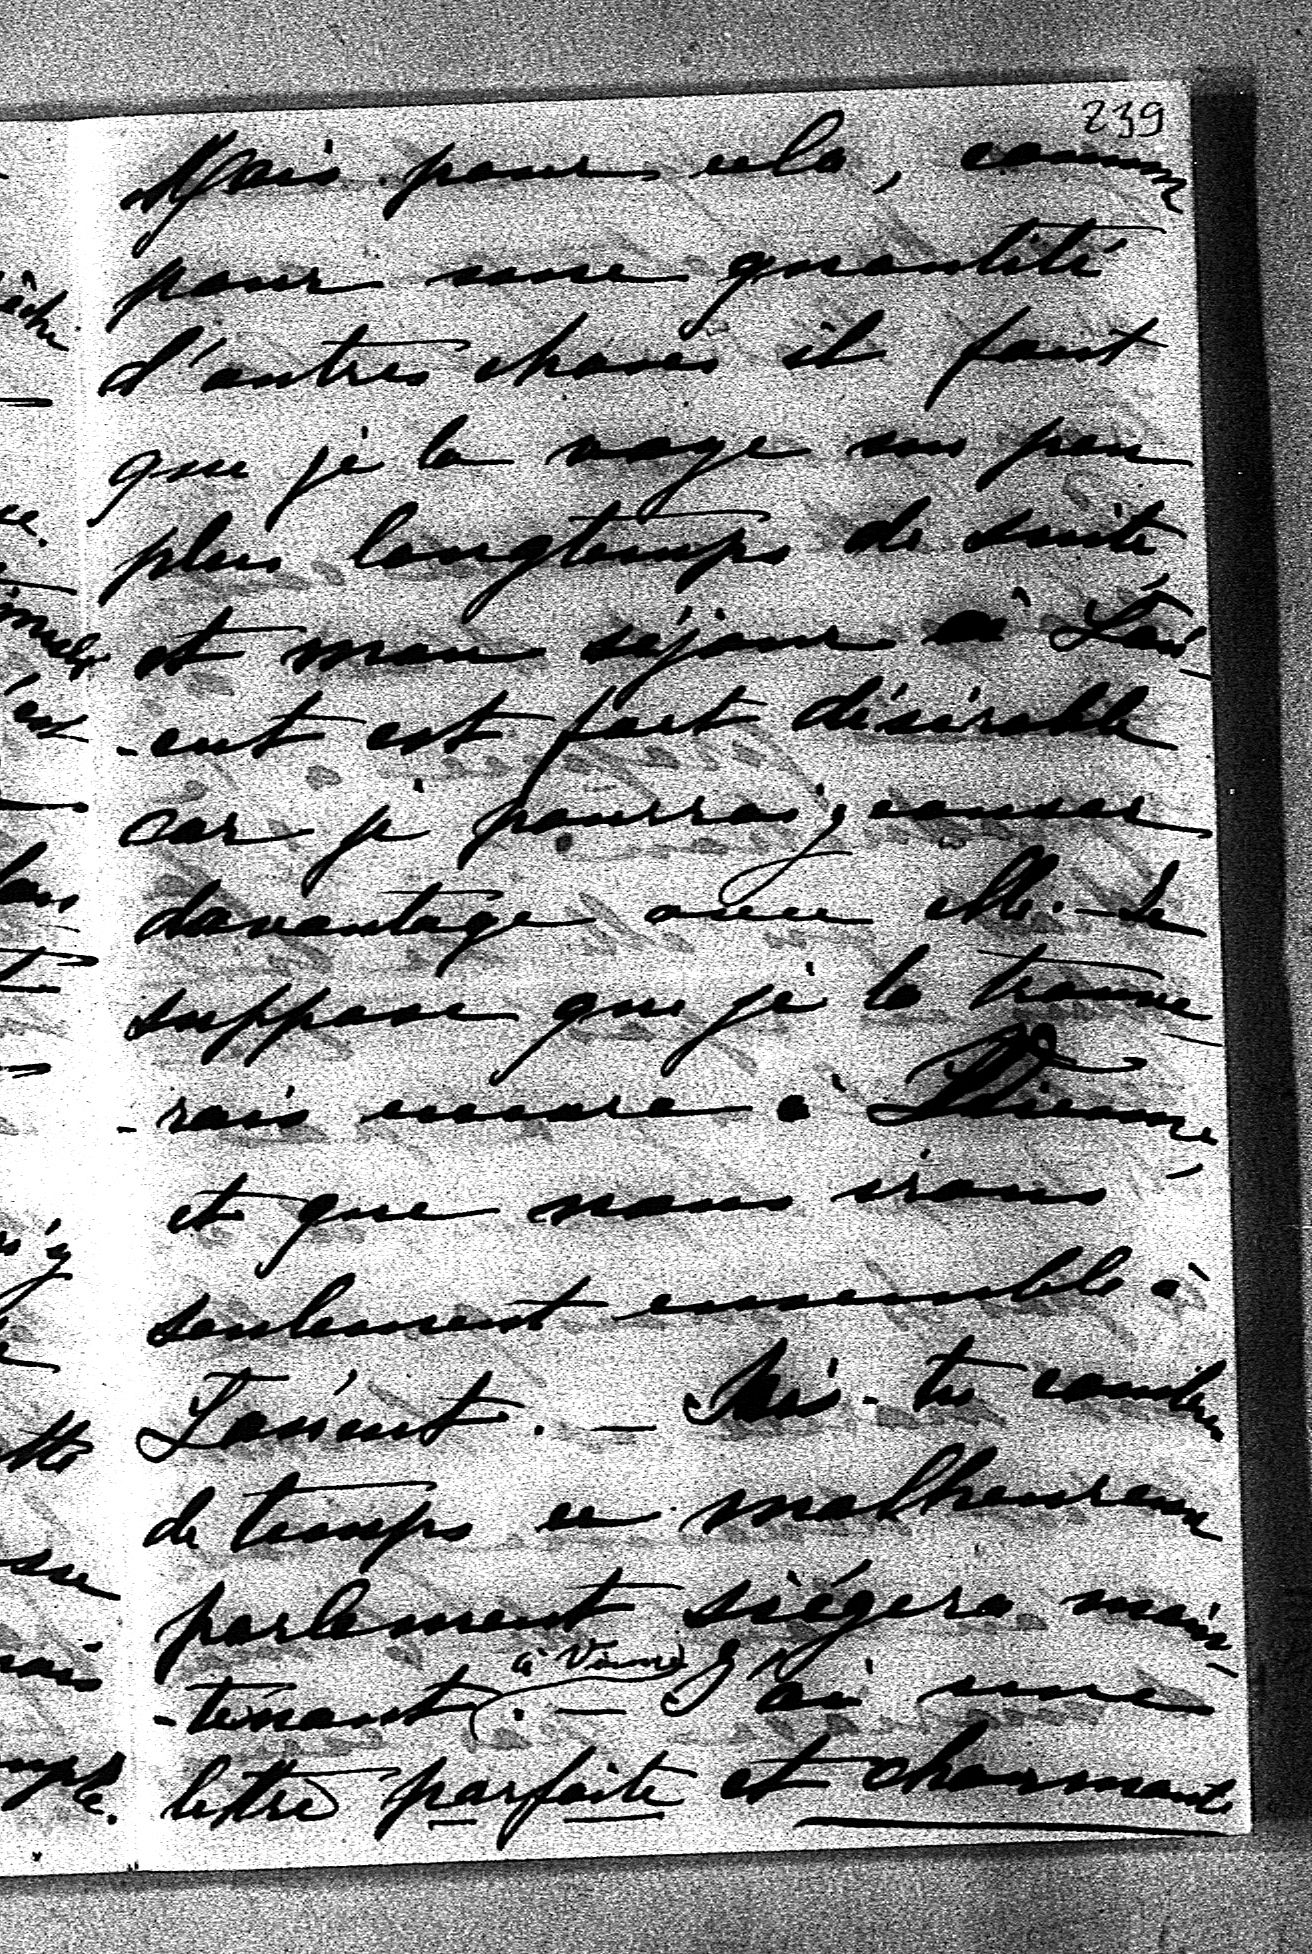 239
Mais pour cela, comme
pour une quantité
d'autres choses il faut
que je la voye un peu
plus longtemps de suite
et mon séjour à Lan-
-cut est fort désirable
car je pourrai y causer
davantage avec elle. — Je
suppose que je la trouve-
-rais encore à Vienne
et que nous irons
seulement ensemble à
Lancut. — Sais-tu combien
de temps ce malheureux
parlement siégera main-
-tenant à Vienne. — J'ai une
lettre parfaite et charmante